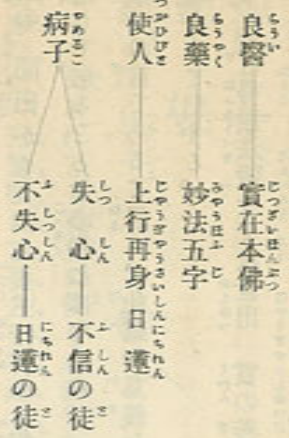 良醫――實在本佛
良藥――妙法五字
使人――上行再身 日蓮
病子
失心――不信の徒
不失心――日蓮の徒